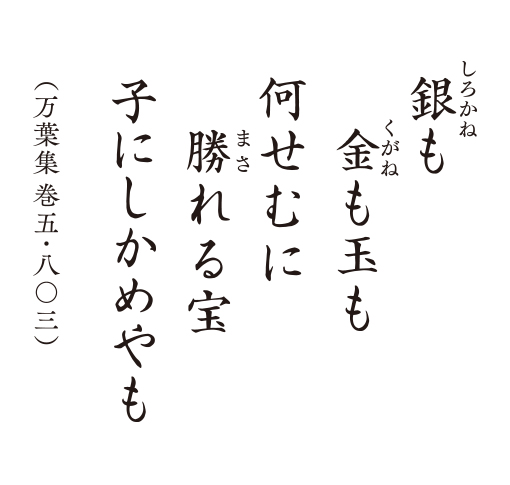 銀も
しろかね
金も玉も
くがね
何せむに
勝れる宝
まさ
子にしかめやも
（万葉集 巻五・八〇三）